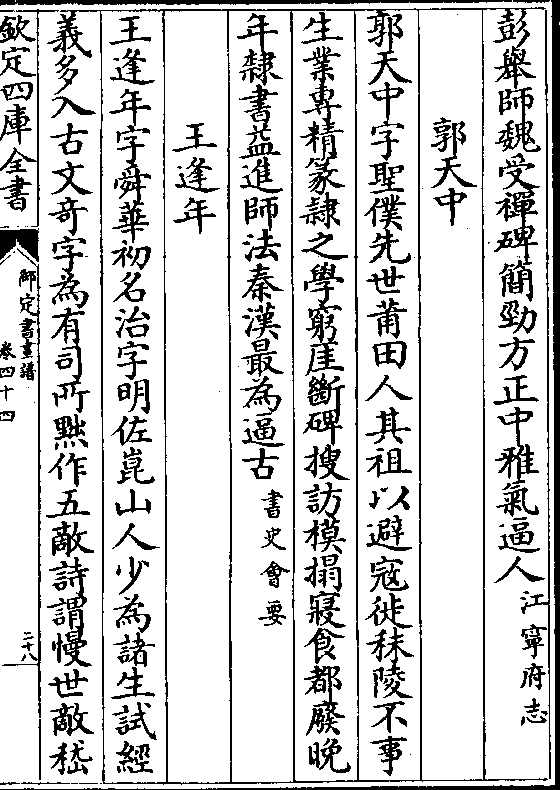 彭舉師魏受禪碑簡勁方正中雅氣逼人江寧府志
郭天中
郭天中字聖僕先世莆田人其祖以避寇徙秣陵不事
生業專精篆隸之學窮崖斷碑搜訪模搨寢食都廢晚
年隸書益進師法秦漢最為逼古書史會要
王逢年
王逢年字舜華初名治字明佐崑山人少為諸生試經
義多入古文奇字為有司所黜作五敵詩謂慢世敵嵇
欽定四庫全書
御定書畫譜
卷四十四
二十八